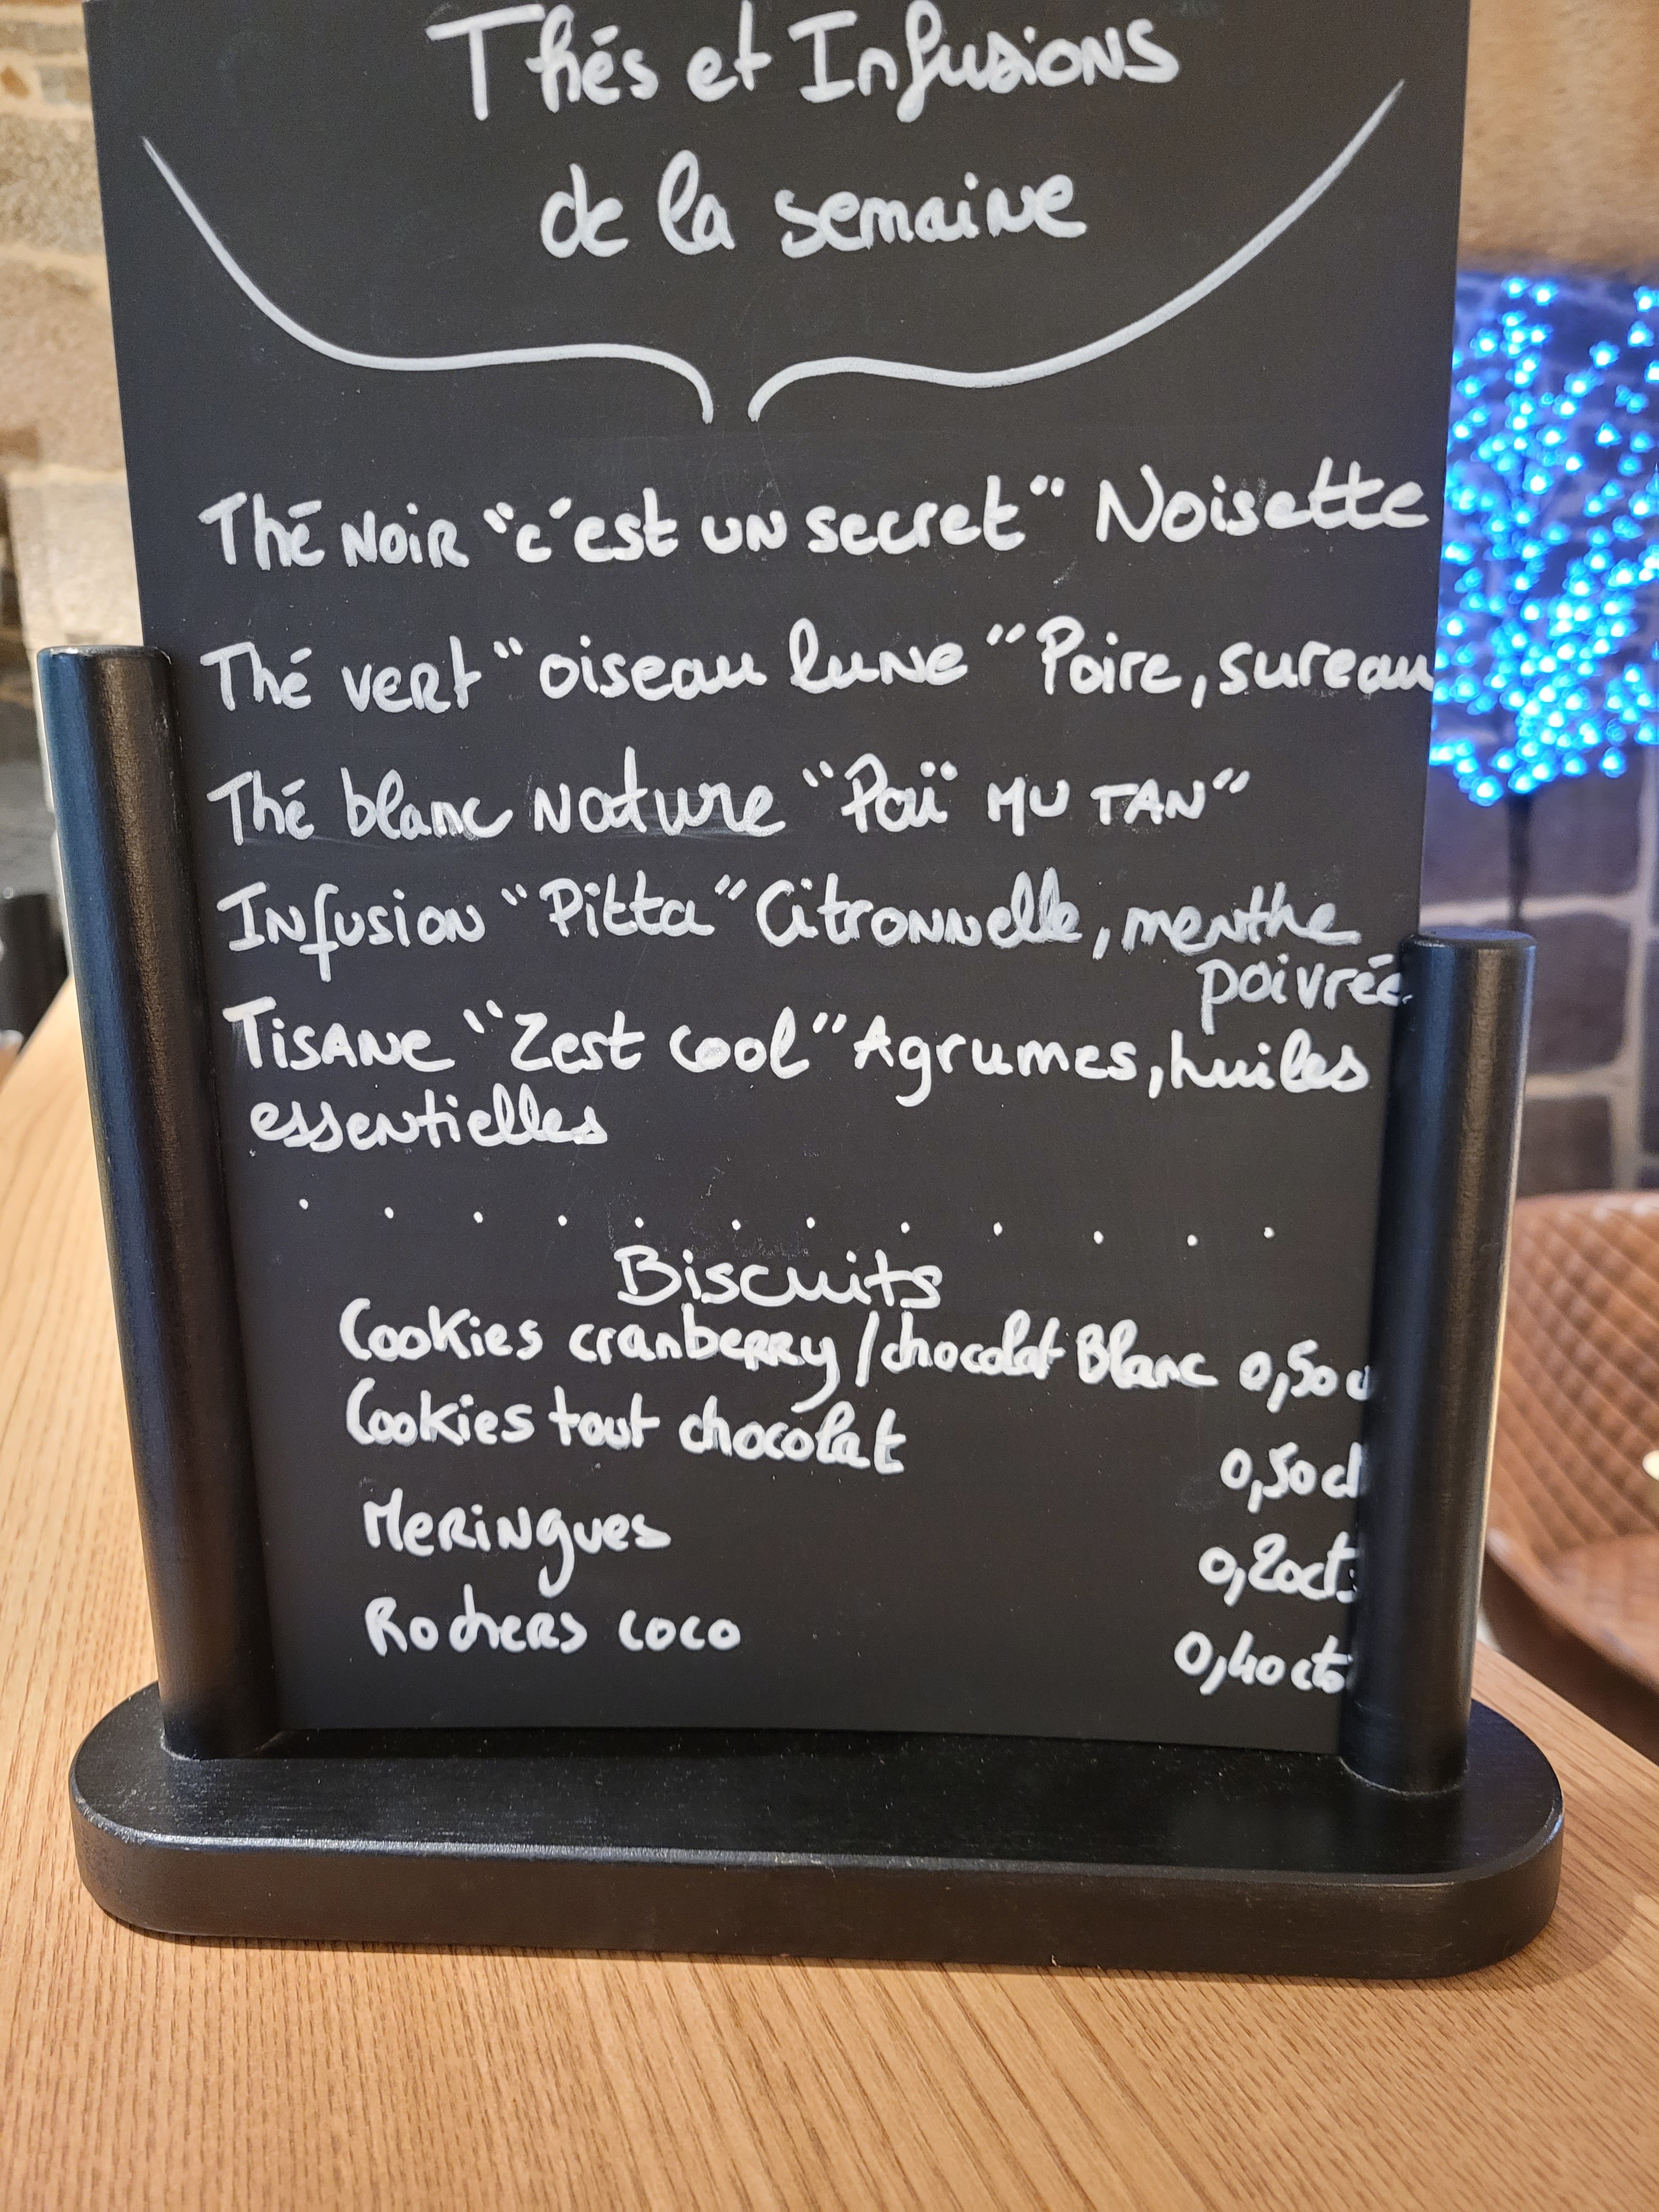 Thés et Infusions
de la semaine
Thé noir "c'est un secret" Noisette
Thé vert "oiseau lune" Poire, sureau
Thé blanc nature "Paï MU TAN"
Infusion "Pitta" Citronnelle, menthe
poivrée
Tisane "Zest Cool" Agrumes, huiles
essentielles
Biscuits
Cookies cranberry/chocolat Blanc 0,50 c
Cookies tout chocolat 0,50ct
Meringues 0,20cts
Rochers coco 0,40cts